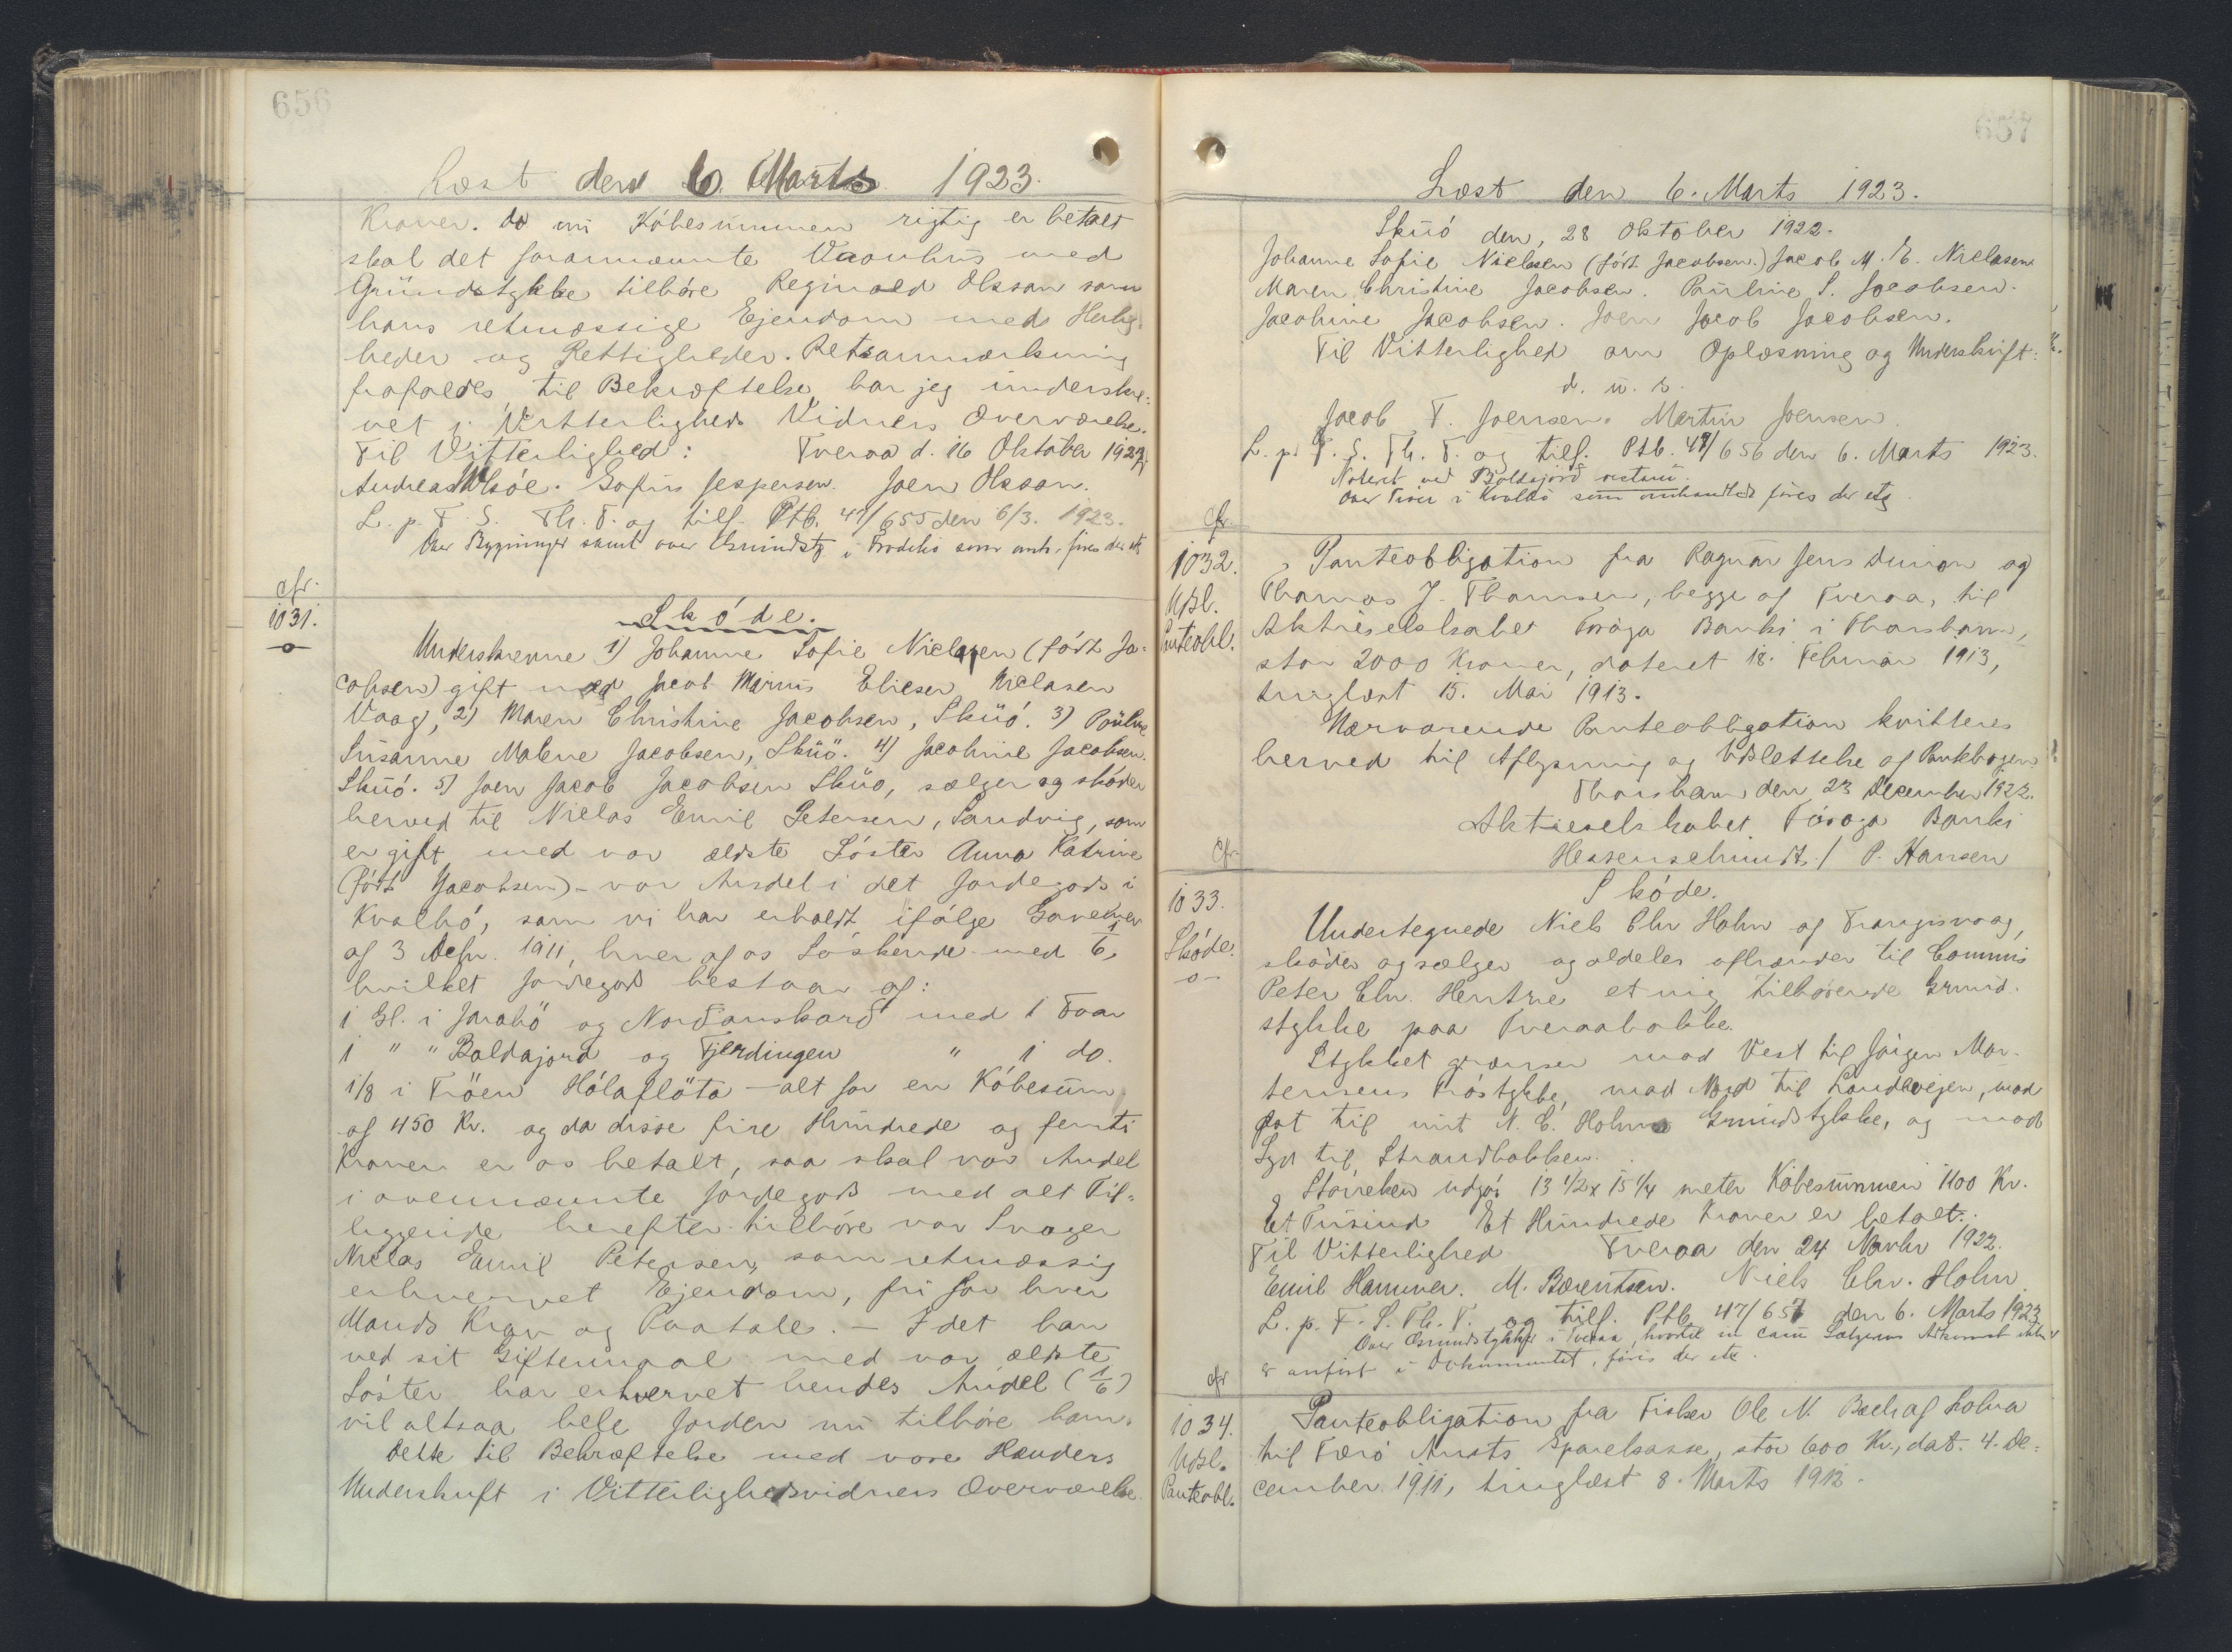 656
Læst den 6. Marts 1923.
Kroner. Da nu Købesummen rigtig er betalt
skal det forannævnte Vaanhus med
Grundstykke tilhøre Reginald Olsson som
hans retmæssige Ejendom med Herlig-
heder og Rettigheder. Retsanmærkning
frafaldes, til Bekræftelse har jeg underskre-
vet i Vitterligheds Vidners Overværelse.
Til Vitterlighed: Tveraa d. 16 Oktober 1922.
Andreas Sofus Jespersen. Joen Olsson.
L. p. F. S. Th. T. og tilf. Ptb. 47/655 den 6/3. 1923.
Over Bygninger samt over Grundst. i Frodebø som anh. føres der etc
cfr.
1031.
Skøde.
Underskrevne 1) Johanne Sofie Nielasen (født Ja-
cobsen) gift med Jacob Marius Elieser Nielasen
Vaag, 2) Maren Christine Jacobsen, Skúø. 3) Pauline
Susanne Malene Jacobsen, Skúø. 4) Jacobine Jacobsen.
Skúø. 5) Joen Jacob Jacobsen Skúø, sælger og skøder
herved til Nielas Emil Petersen, Sandvig, som
er gift med vor ældste Søster Anna Katrine
(født Jacobsen) - vor Andel i det Jordegods i
Kvalbø, som vi har erholdt ifølge Gavebrev
af 3 Debr. 1911, hver af os Søskende med 1/6,
hvilket Jordegods bestaar af:
1 Gl. i Jarabø og Nordanskard med 1 Faar
1 " " Boldajord og Fjerdingen " 1 do.
1/8 i Trøen Hólafløta - alt for en Købesum
af 450 Kr. og da disse fire Hundrede og femti
Kroner er os betalt, saa skal vor Andel
i ovennævnte Jordegods med alt Til-
liggende herefter tilhøre vor Svoger
Nielas Emil Petersen, som retmæssig
erhvervet Ejendom, fri for hver
Mands Krav og Paatale. - Idet han
ved sit Giftermaal med vor ældste
Søster har erhvervet hendes Andel (1/6)
vil altsaa hele Jorden nu tilhøre ham.
Dette til Bekræftelse med vore Hænders
Underskrift i Vitterlighedsvidners Overværelse.
657
Læst den 6. Marts 1923.
Skúø den, 28 Oktober 1922.
Johanne Sofie Nielasen (født Jacobsen.) Jacob M. E. Nielasen
Maren Christine Jacobsen. Pauline S. Jacobsen.
Jacobine Jacobsen. Joen Jacob Jacobsen.
Til Vitterlighed om Oplæsning og Underskrift:
d. u. s.
Jacob T. Joensen. Martin Joensen.
L. p. F. S. Th. T. og tilf. Ptb. 47/656 den 6. Marts 1923.
Noteret ved Boldajord
Over Trøer i Kvalbø som anhandlede føres der etc.
cfr.
1032.
Udsl.
Panteobl.
Panteobligation fra Ragnar Jens Dunon og
Thomas J. Thomsen, begge af Tveraa, til
Aktieselskabet Føroya Banki i Thorshavn,
stor 2000 Kroner, dateret 18. Februar 1913,
tinglæst 15. Mai 1913.
Nærværende Panteobligation kvitteres
herved til Aflysning og Udslettelse af Pantebogen.
Thorshavn den 23 December 1922.
Aktieselskabet Føroya Banki
Hessenschmidt. / P. Hansen
cfr.
1033.
Skøde.
Skøde.
Undertegnede Niels Chr Holm af Trangisvaag,
skøder og sælger og aldeles afhænder til Commis
Peter Chr. Hentze et mig tilhørende Grund-
stykke paa Tveraabakke.
Stykket grænser mod Vest til Jørgen Mor-
tensens Trøstykke, mod Nord til Landevejen, mod
Øst til mit N. C. Holms Grundstykke, og mod
Syd til Strandbakken.
Størrelsen udgør 13 1/2 x 15 1/4 meter Købesummen 1100 Kr.
Et Tusind Et Hundrede Kroner er betalt.
Til Vitterlighed Tveraa den 24 Novbr 1922.
Emil Hammer. M. Bærentsen. Niels Chr. Holm
L. p. F. S. Th. T. og tilf. Ptb. 47/657 den 6. Marts 1923
Over Grundstykker i Tveraa, hvortil in casu Sælgerens Adkomst ikke
er anført i Dokumentet, føres der etc.
cfr
1034.
Udsl.
Panteobl.
Panteobligation fra Fisker Ole N. Bech af Lobra
til Færø Amts Sparekasse, stor 600 Kr., dat. 4. De-
cember 1911, tinglæst 8. Marts 1912.